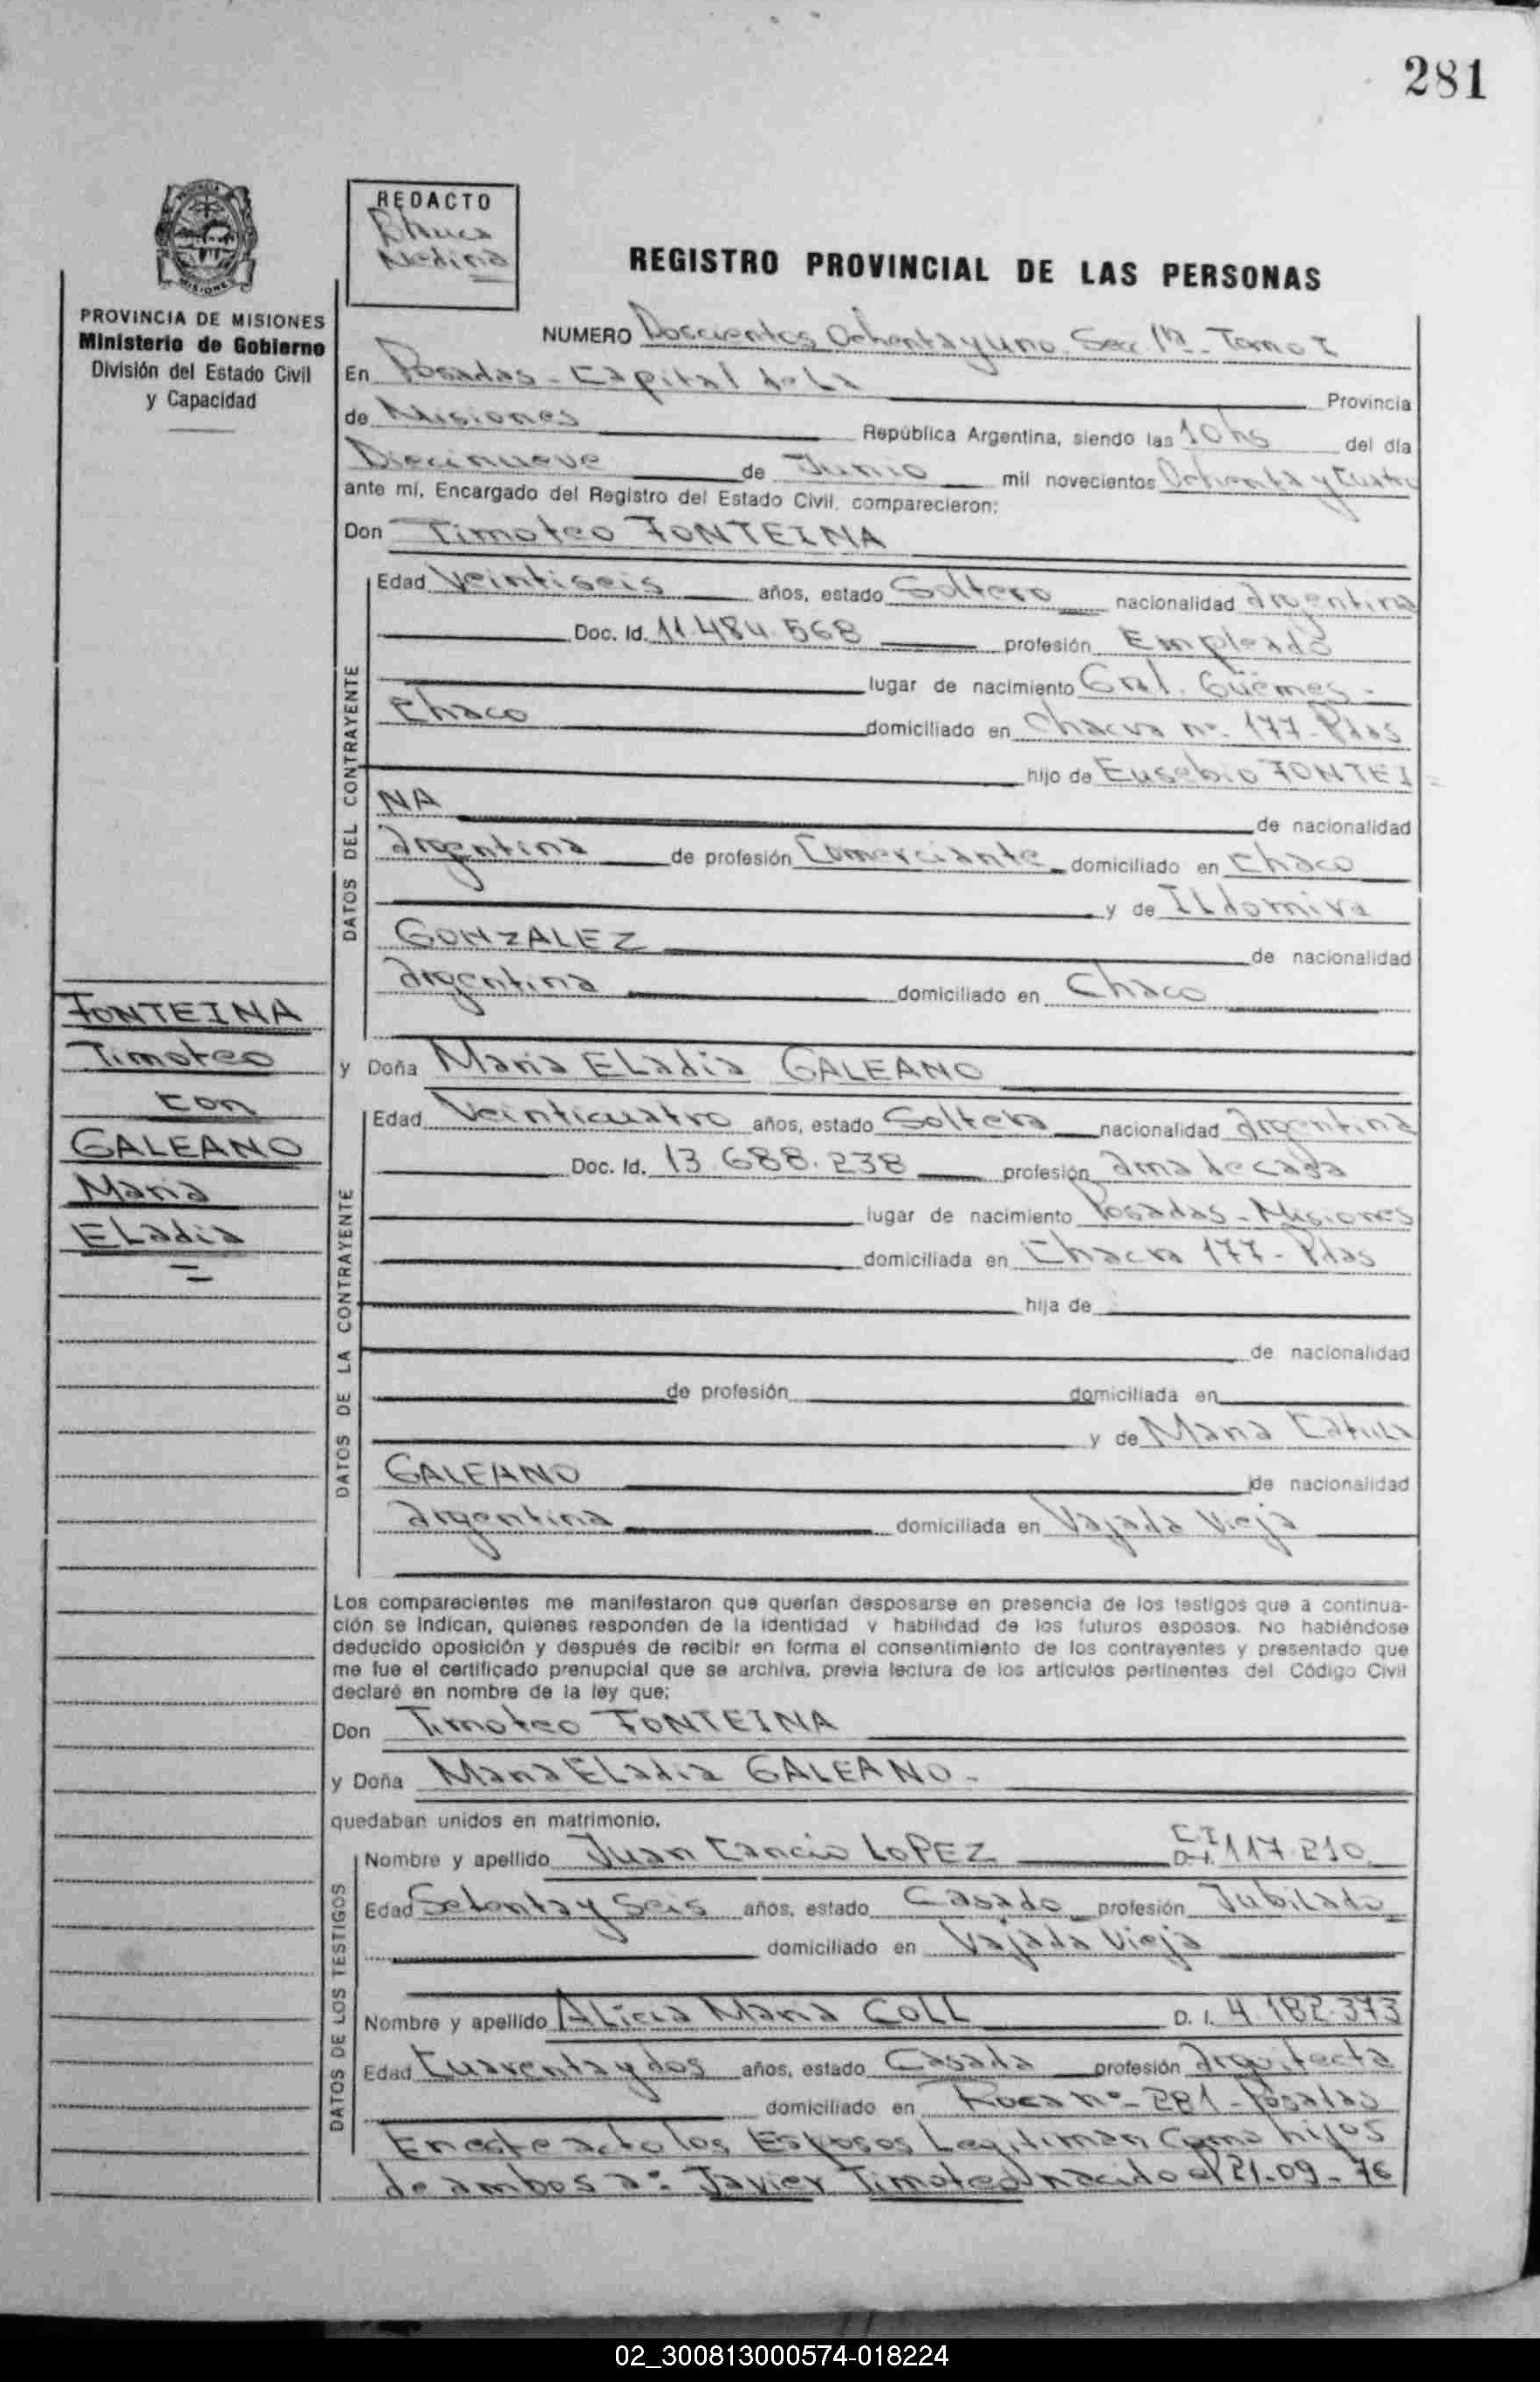 281
REDACTO
Medina
REGISTRO PROVINCIAL DE LAS PERSONAS
PROVINCIA DE MISIONES
Ministerio de Gobierno
División del Estado Civil
y Capacidad
NUMERO Doscientos Ochenta y uno. Sec 1ª. Tomo I
En Posadas - Capital de La Provincia
de Misiones República Argentina, siendo las 10 hs del día
Diecinueve de Junio mil novecientos Ochenta y Cuatro
ante mí, Encargado del Registro del Estado Civil, comparecieron:
Don Timoteo FONTEINA
DATOS DEL CONTRAYENTE
Edad Veintiseis años, estado Soltero nacionalidad argentina
Doc. Id. 11.484.568 profesión Empleado
lugar de nacimiento Gral. Güemes -
Chaco domiciliado en Chacra nº. 177 - Pdas
hijo de Eusebio FONTEI =
NA de nacionalidad
argentina de profesión Comerciante domiciliado en Chaco
y de ILdomira
GONZALEZ de nacionalidad
argentina domiciliado en Chaco
FONTEINA
Timoteo
con
GALEANO
Maria
ELadia
y Doña Maria ELadia GALEANO
DATOS DE LA CONTRAYENTE
Edad Veinticuatro años, estado Soltera nacionalidad argentina
Doc. Id. 13.688.238 profesión ama de casa
lugar de nacimiento Posadas - Misiones
domiciliada en Chacra 177 - Pdas
hija de
de nacionalidad
de profesión domiciliada en
y de Maria
GALEANO de nacionalidad
argentina domiciliada en Vajada Vieja
Los comparecientes me manifestaron que querían desposarse en presencia de los testigos que a continua-
ción se indican, quienes responden de la identidad y habilidad de los futuros esposos. No habiéndose
deducido oposición y después de recibir en forma el consentimiento de los contrayentes y presentado que
me fue el certificado prenupcial que se archiva, previa lectura de los artículos pertinentes del Código Civil
declaré en nombre de la ley que:
Don Timoteo FONTEINA
y Doña Maria ELadia GALEANO -
quedaban unidos en matrimonio.
DATOS DE LOS TESTIGOS
Nombre y apellido Juan Cancio LOPEZ C I D. I. 117.210
Edad Setenta y Seis años, estado Casado profesión Jubilado
domiciliado en Vajada Vieja
Nombre y apellido ALicia Maria COLL D. I. 4.182.373
Edad Cuarenta y dos años, estado Casada profesión arquitecta
domiciliado en Roca nº - 281 - Posadas
En este acto los Esposos Legitiman como hijos
de ambos a: Javier Timoteo nacido el 21-09-76
02_300813000574-018224